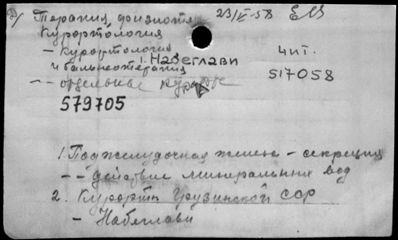 Терапия, физиотер 23/V-58
Курортология
- курортология чит.
и бальнеотерапия 1. Набеглави
517058
-- отдельные курорты
579705
1. Поджелудочная железа - секреция
-- действие минеральных вод
2. Курорты Грузинской ССР
- Набеглави